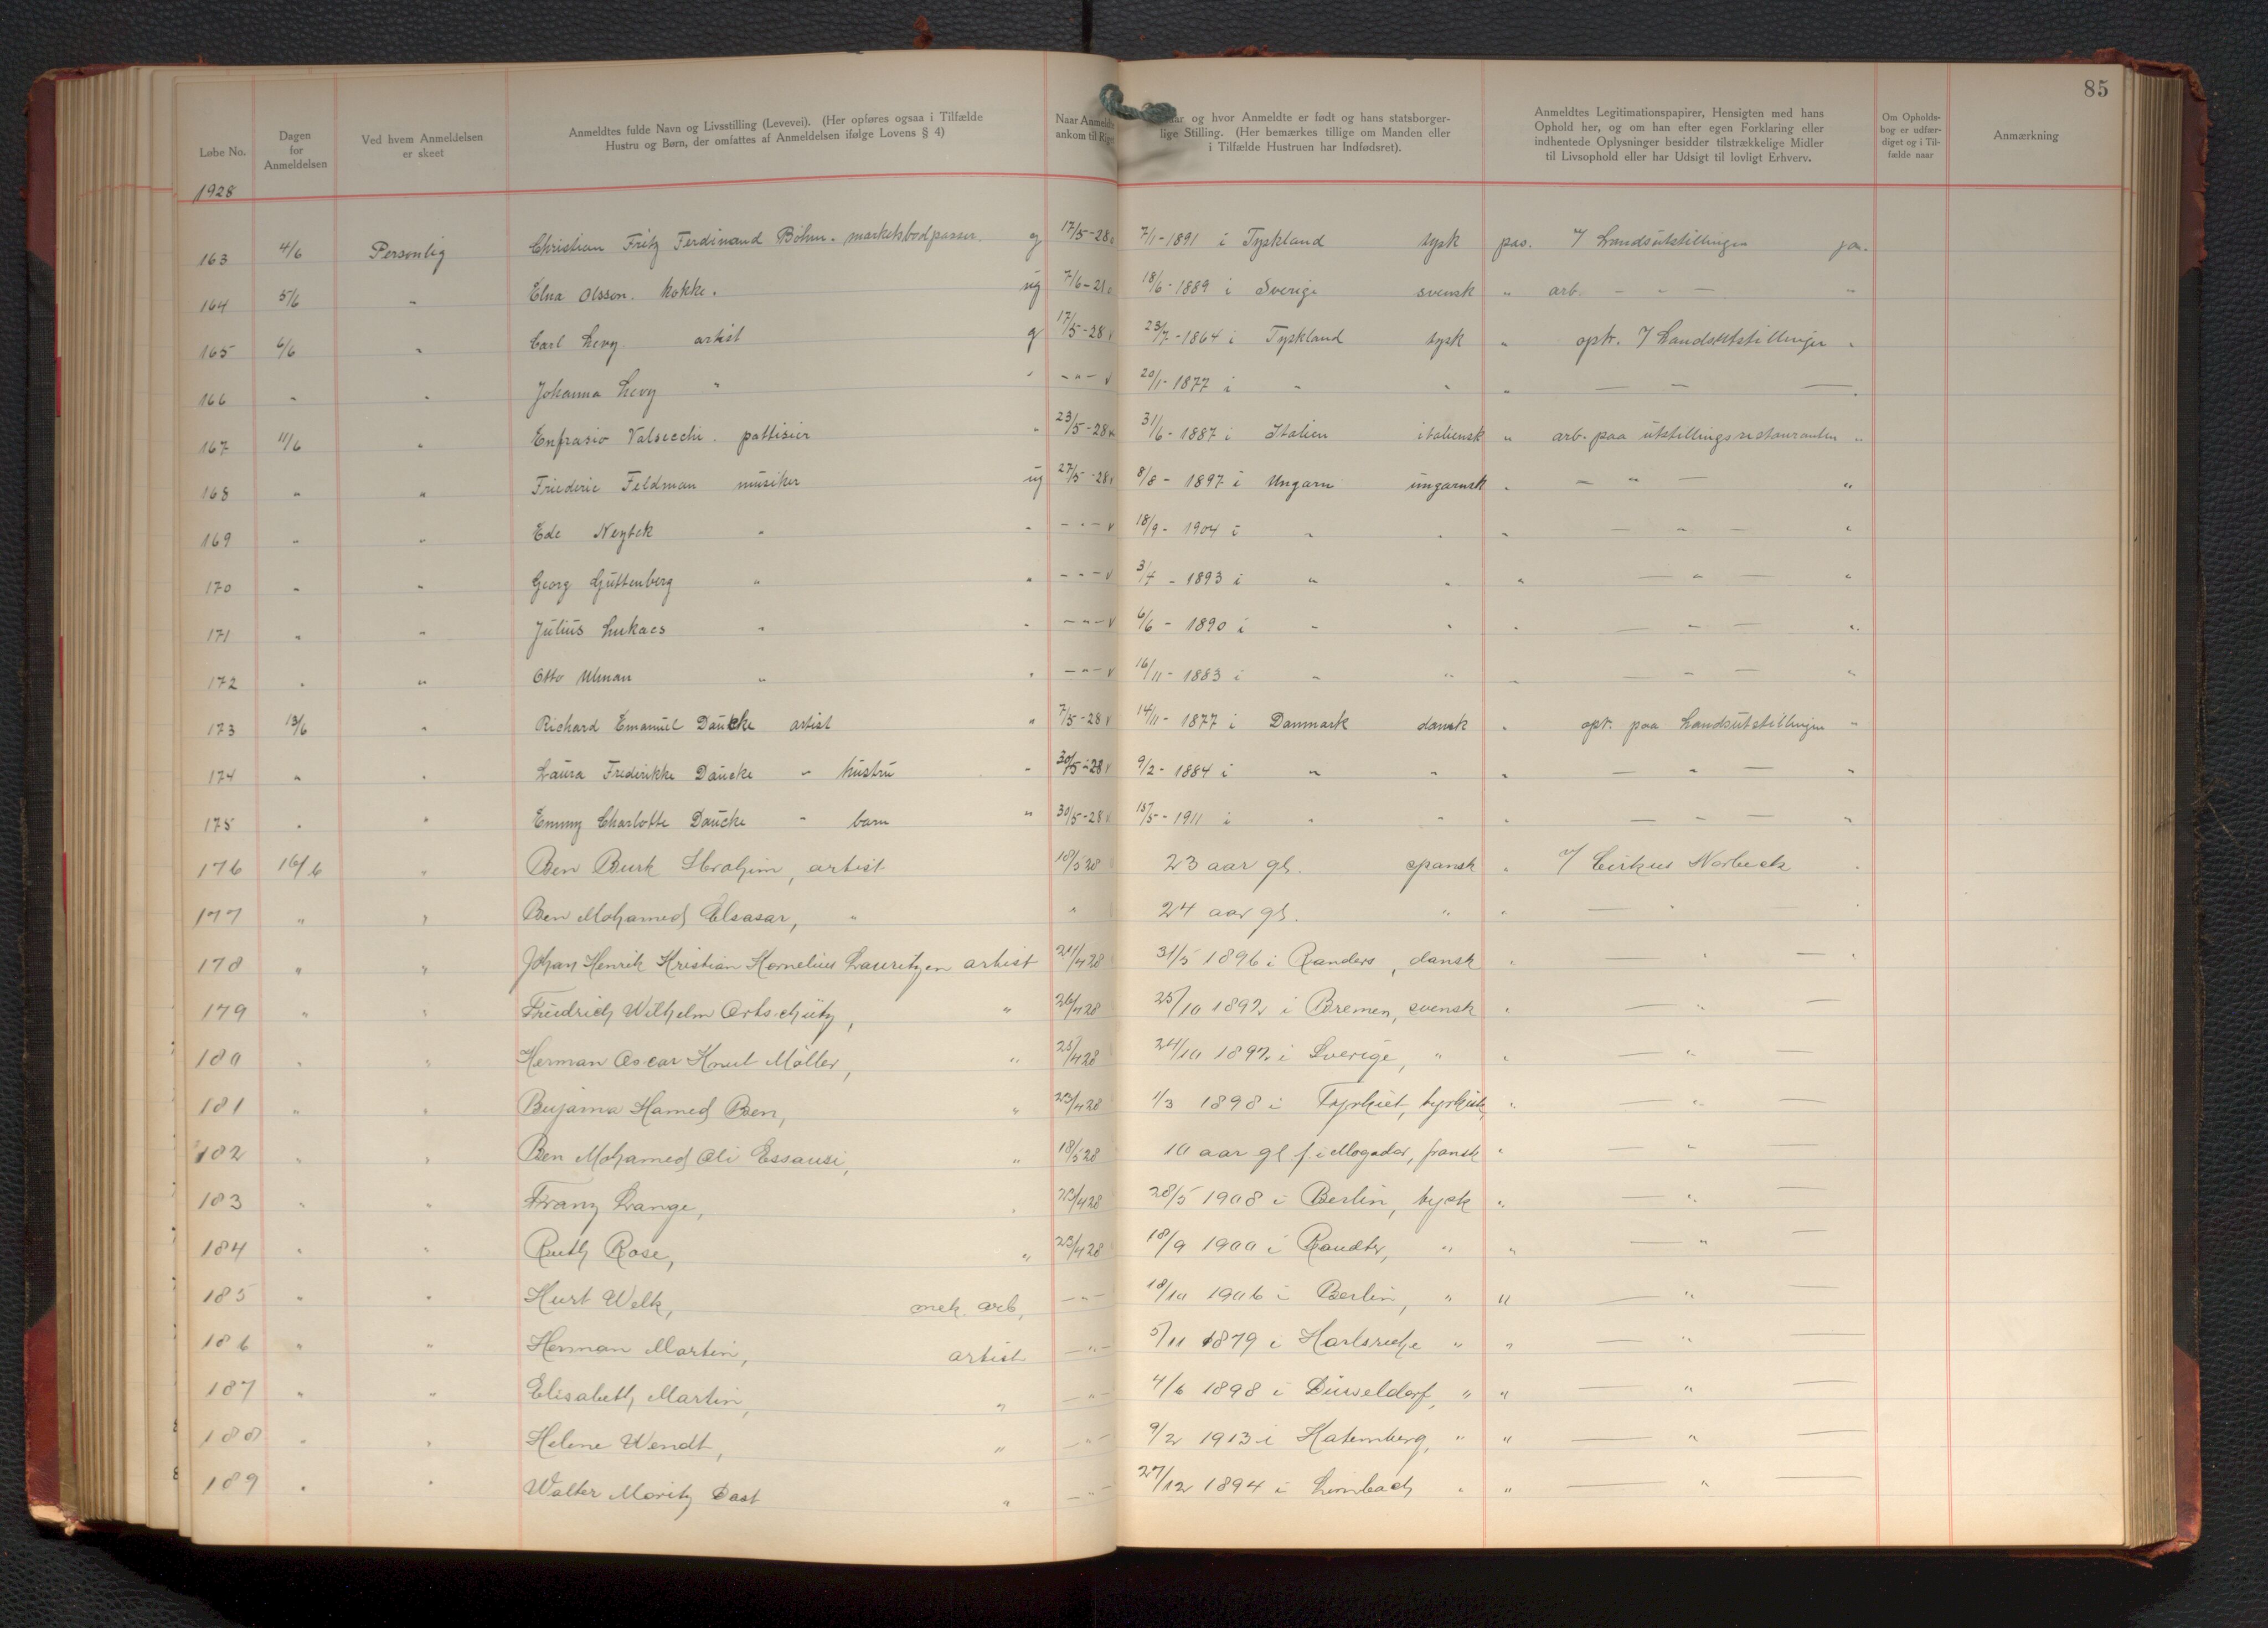 85
Løbe No.
Dagen for Anmeldelsen
Ved hvem Anmeldelsen er skeet
Anmeldtes fulde Navn og Livsstilling (Levevei). (Her opføres ogsaa i Tilfælde Hustru og Børn, der omfattes af Anmeldelsen ifølge Lovens § 4)
Naar Anmeldte ankom til Riget
og hvor Anmeldte er født og hans statsborgerlige Stilling. (Her bemærkes tillige om Manden eller i Tilfælde Hustruen har Indfødsret).
Anmeldtes Legitimationspapirer, Hensigten med hans Ophold her, og om han efter egen Forklaring eller indhentede Oplysninger besidder tilstrækkelige Midler til Livsophold eller har Udsigt til lovligt Erhverv.
Om Opholdsbog er udfærdiget og i Tilfælde naar
Anmærkning
1928
163 4/6 Personlig Christian Fritz Ferdinand Böhm. markedsbodpasser. g 17/5-28 7/1-1891 i Tyskland tysk pas. v/ Landsutstillingen ja.
164 5/6 " Elna Olsson. kokke. ug 7/6-21 18/6-1889 i Sverige svensk " arb. — " — "
165 6/6 " Carl Levy. artist g 17/5-28 23/7-1864 i Tyskland tysk " optr. v/ Landsutstillingen "
166 " " Johanna Levy " " — " — 20/1-1877 i " " " — — —
167 11/6 " Enfrasio Valsecchi. pattisier " 23/5-28 31/6-1887 i Italien italiensk " arb. paa utstillingsrestauranten "
168 " " Friederic Feldman musiker ug 27/5-28 8/8-1897 i Ungarn ungarnsk " — " — "
169 " " Ede Neytek " " — " — 18/9-1904 i " " " — " — "
170 " " Georg Guttenberg " " — " — 3/4-1893 i " " " — " — "
171 " " Julius Lukacs " " — " — 6/6-1890 i " " " — " — "
172 " " Otto Ulman " " — " — 16/11-1883 i " " " — " — "
173 13/6 " Richard Emanuel Daucke artist " 7/5-28 14/11-1877 i Danmark dansk " optr. paa Landsutstillingen "
174 " " Laura Frederikke Daucke " hustru " 30/5-28 9/2-1884 i " " " — " — "
175 " " Emmy Charlotte Daucke " barn " 30/5-28 15/5-1911 i " " " — " — "
176 16/6 " Ben Burk Ibrahim, artist 18/5 28 23 aar gl. spansk " v/ Cirkus Norbeck "
177 " " Ben Mohamed Elsasar, " " 24 aar gl. " " — " — "
178 " " Johan Henrik Kristian Kornelius Lauritzen artist 21/4 28 31/5 1896 i Randers, dansk " — " — "
179 " " Friedrich Wilhelm Ortschütz, " 26/4 28 25/10 1892 i Bremen, svensk " — " —
180 " " Herman Oscar Knut Möller, " 25/4 28 24/10 1892 i Sverige, " " — " —
181 " " Bujama Hamed Ben, " 23/4 28 1/3 1898 i Tyrkiet, tyrkisk, " — " —
182 " " Ben Mohamed Ali Essausi, " 18/5 28 10 aar gl f. i Mogador, fransk " — " —
183 " " Franz Lange, " 23/4 28 28/5 1908 i Berlin, tysk " — " —
184 " " Ruth Rose, " 23/4 28 18/9 1900 i Raudter, " " — " —
185 " " Kurt Welk, mek. arb, — " — 18/10 1906 i Berlin, " " — " —
186 " " Herman Martin, artist — " — 5/11 1879 i Karlsruhe " " — " —
187 " " Elisabeth Martin, " — " — 4/6 1898 i Düsseldorf, " " — " —
188 " " Helene Wendt, " — " — 9/2 1913 i Katernberg, " " — " —
189 " " Walter Moritz Dast " — " — 27/12 1894 i Limbach " " — " —